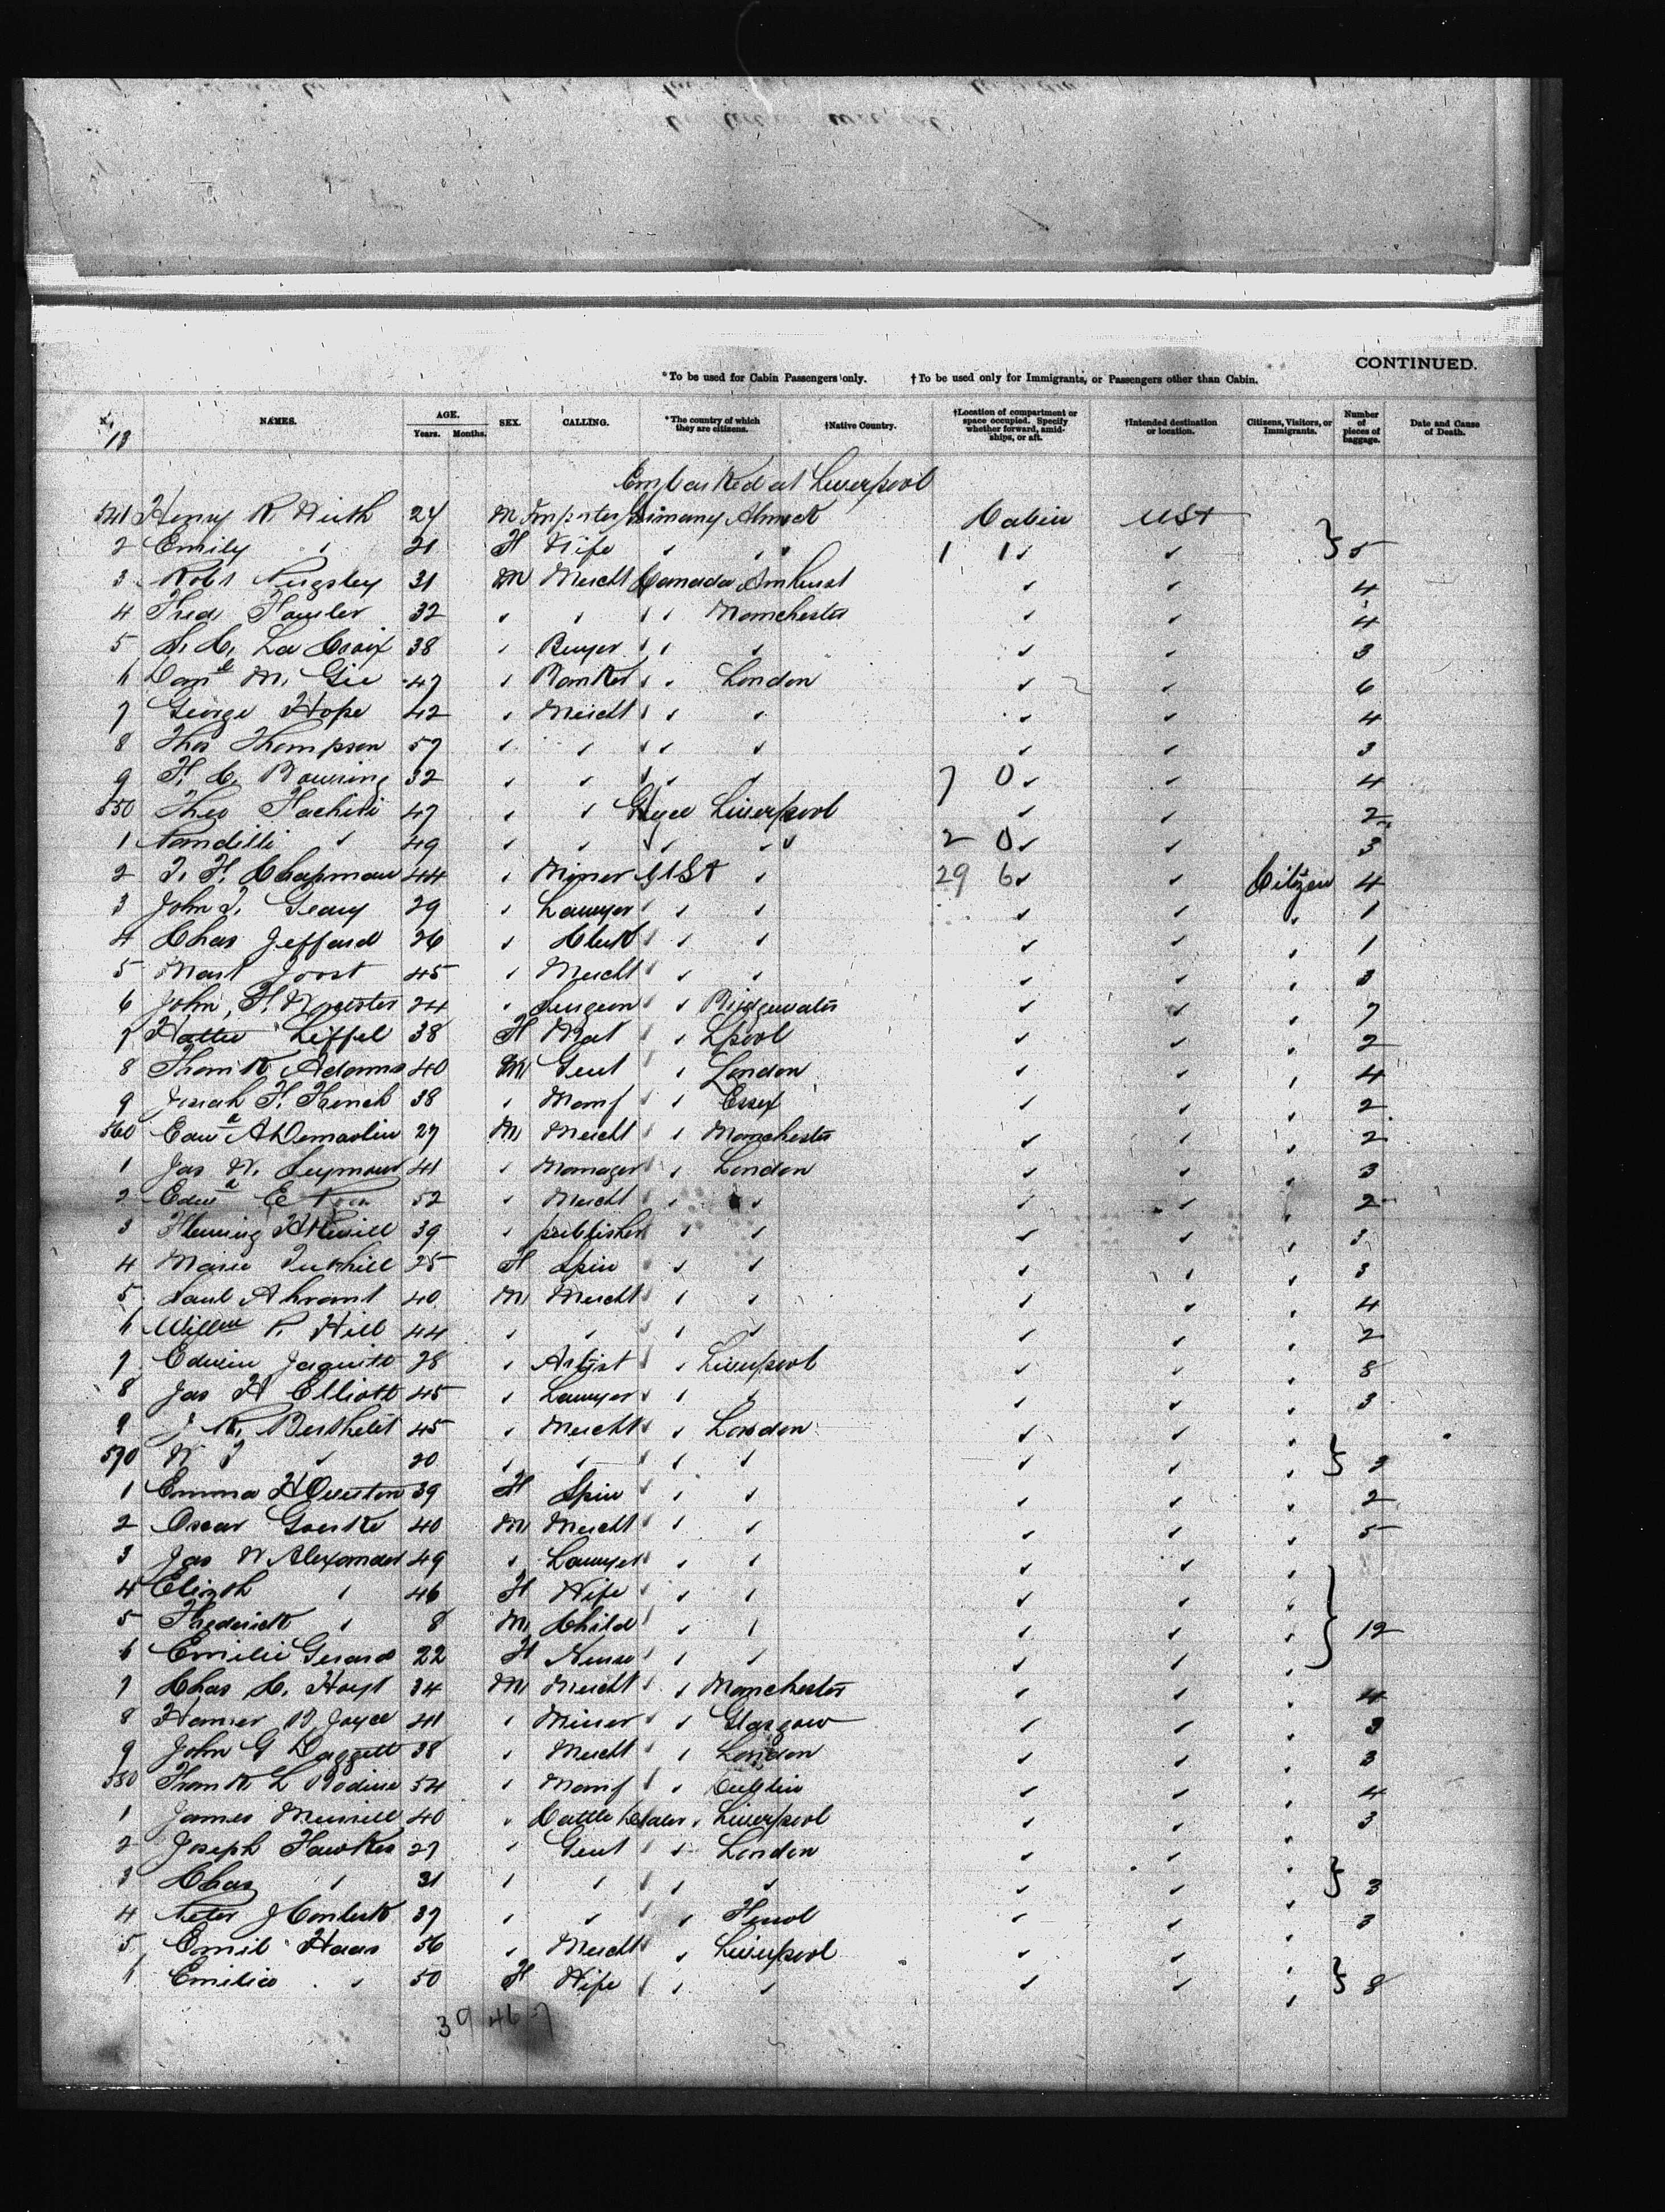 CONTINUED.
*To be used for Cabin Passengers only. †To be used only for Immigrants, or Passengers other than Cabin.
No. NAMES. AGE. Years. Months. SEX. CALLING. *The country of which they are citizens. †Native Country. †Location of compartment or space occupied. Specify whether forward, amidships, or aft. †Intended destination or location. Citizens, Visitors, or Immigrants. Number of pieces of baggage. Date and Cause of Death.
13
Embarked at Liverpool
541 Henry R. 24 M Importer Germany Cabin USA
2 Emily " 21 F Wife " " 1 1 " " } 5
3 Robt Pugsley 31 M Mercht Canada Amherst " " 4
4 Fred Fowler 32 " " " " Manchester " " 4
5 La Croix 38 " Buyer " " " " " 3
6 Danl M. Gie 47 " Banker " " London " " 6
7 George Hope 42 " Mercht " " " " " 4
8 Thos Thompson 57 " " " " " " " 3
9 F. C. Bowring 32 " " " " " 7 0 " " 4
550 Theo 47 " " Liverpool " " 2
1 " 49 " " " " " 2 0 " " 3
2 Chapman 44 " Miner USA " 29 6 " " Citizen 4
3 John J. Geary 29 " Lawyer " " " " " " 1
4 Chas Jeffard 26 " Clerk " " " " " " 1
5 Joost 45 " Mercht " " " " " " 3
6 John F. 24 " Surgeon " " Bridgewater " " " 7
7 Hattie Leffel 38 F " " Lpool " " " 2
8 Adams 40 M Gent " London " " " 4
9 Josiah F. French 38 " Manf " " Essex " " " 2
560 Edwd A 27 M Mercht " " Manchester " " " 2
1 Jas W. Seymour 41 " Manager " " London " " " 3
2 Edwd E 52 " Mercht " " " " " " 2
3 Fleming H Revell 39 " publisher " " " " " 3
4 Marie 25 F Spin " " " " " " 3
5 40 M Mercht " " " " " " 4
6 Willm R. Hill 44 " " " " " " " 2
7 Edwin 28 " Artist " Liverpool " " " 8
8 Jas H Elliott 45 " Lawyer " " " " " " 3
9 J. R. Berthelet 45 " Mercht " " London " " "
570 W J " 20 " " " " " " " " } 2
1 Emma H Overton 39 F Spin " " " " " " 2
2 Oscar Goerke 40 M Mercht " " " " " " 5
3 Jas W Alexander 49 " Lawyer " " " " " "
4 Elizth " 46 F Wife " " " " " "
5 Frederick " 8 M Child " " " " " " } 12
6 Emilie Gerard 22 F Nurse " " " " " "
7 Chas C. Hoyt 34 M Mercht " " Manchester " " " 4
8 Joyce 41 " Miner " " Glasgow " " " 3
9 John G Daggett 38 " Mercht " " London " " " 3
580 Frank L Bodine 54 " Manf " " Dublin " " " 4
1 James 40 " Cattle Dealer " Liverpool " " " 3
2 Joseph Fawkes 27 " Gent " " London " " "
3 Chas " 31 " " " " " " " " } 3
4 Peter J 37 " " " " " " 3
5 Emil Haas 56 " Mercht " " Liverpool " " "
6 Emilie " 50 F Wife " " " " " " } 8
39 46 7